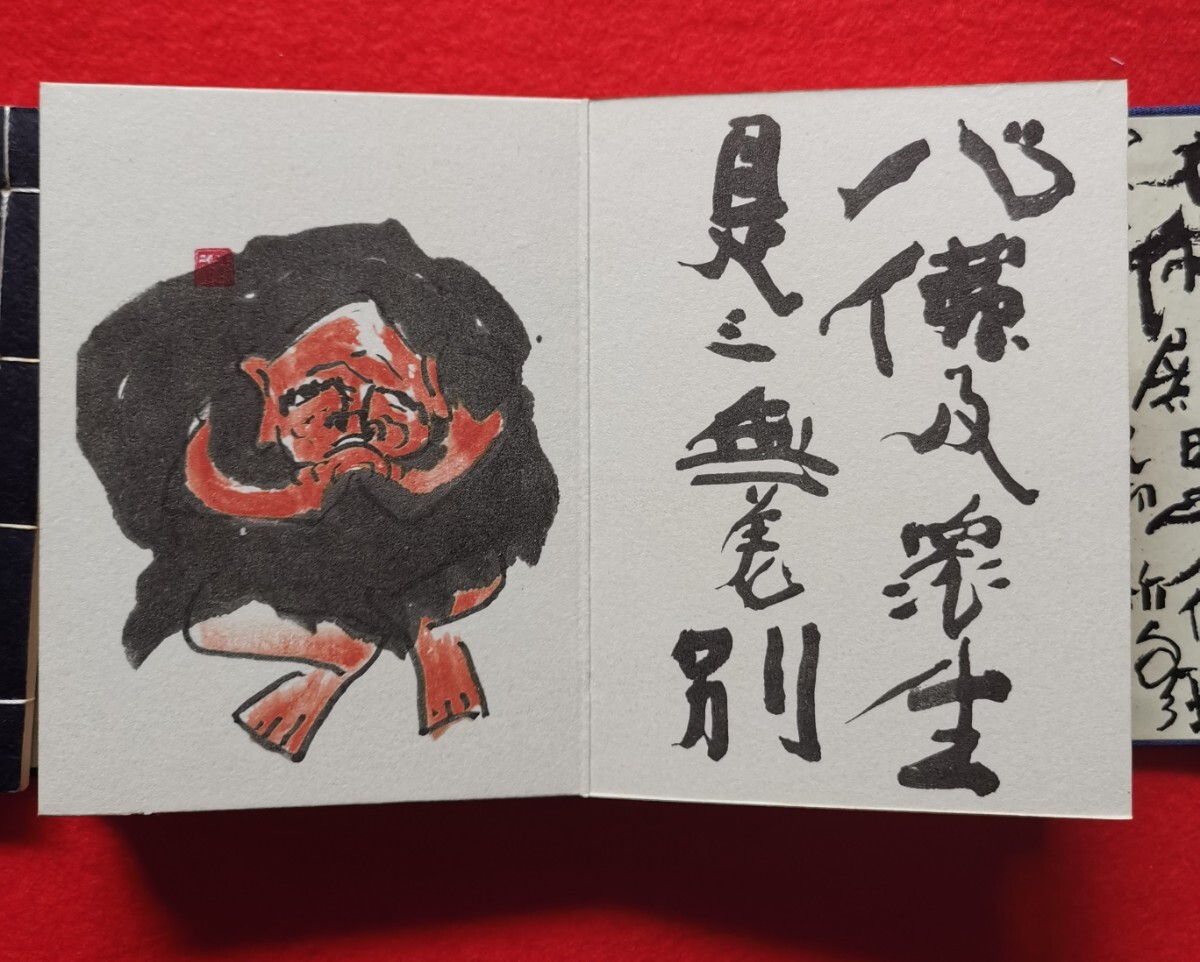 心佛及眾生
是三無差別